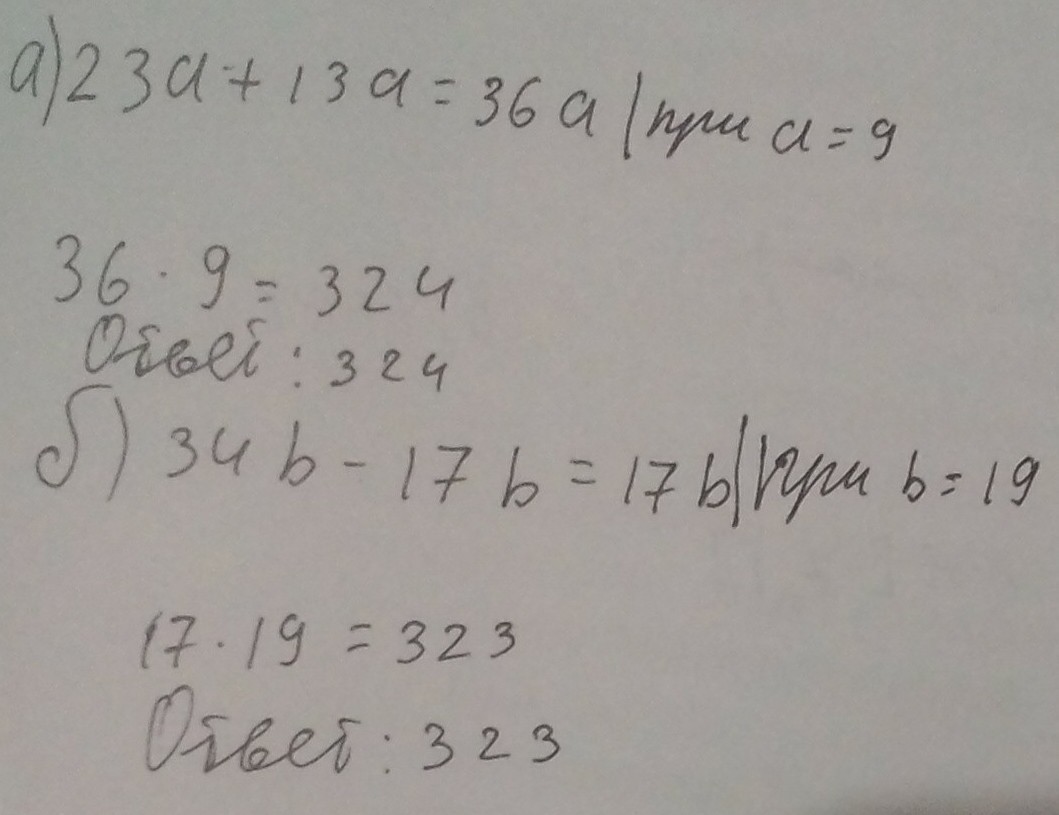 а) 23a + 13a = 36a | при a = 9
36 · 9 = 324
Ответ: 324
б) 34b - 17b = 17b | при b = 19
17 · 19 = 323
Ответ: 323